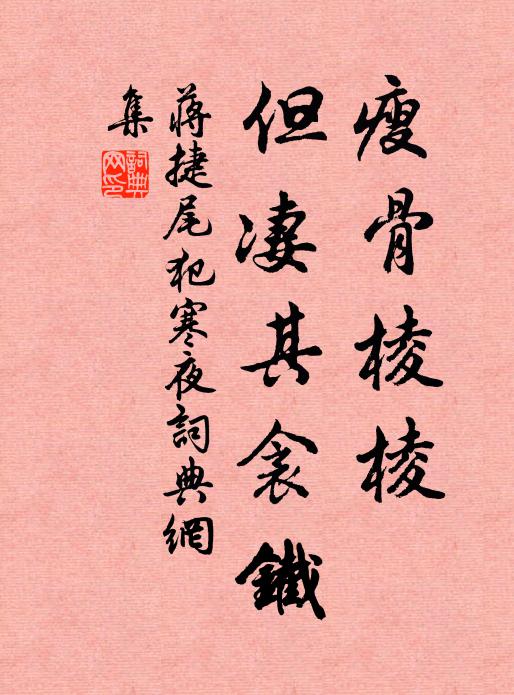 瘦骨棱棱
但凄其衾鐵
蔣捷尾犯寒夜詞典網
集
詞典
网印